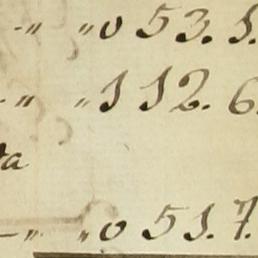 -„ „0 53. 1.
-„ „1 12. 6.
ta
-„ „0 51. 7.